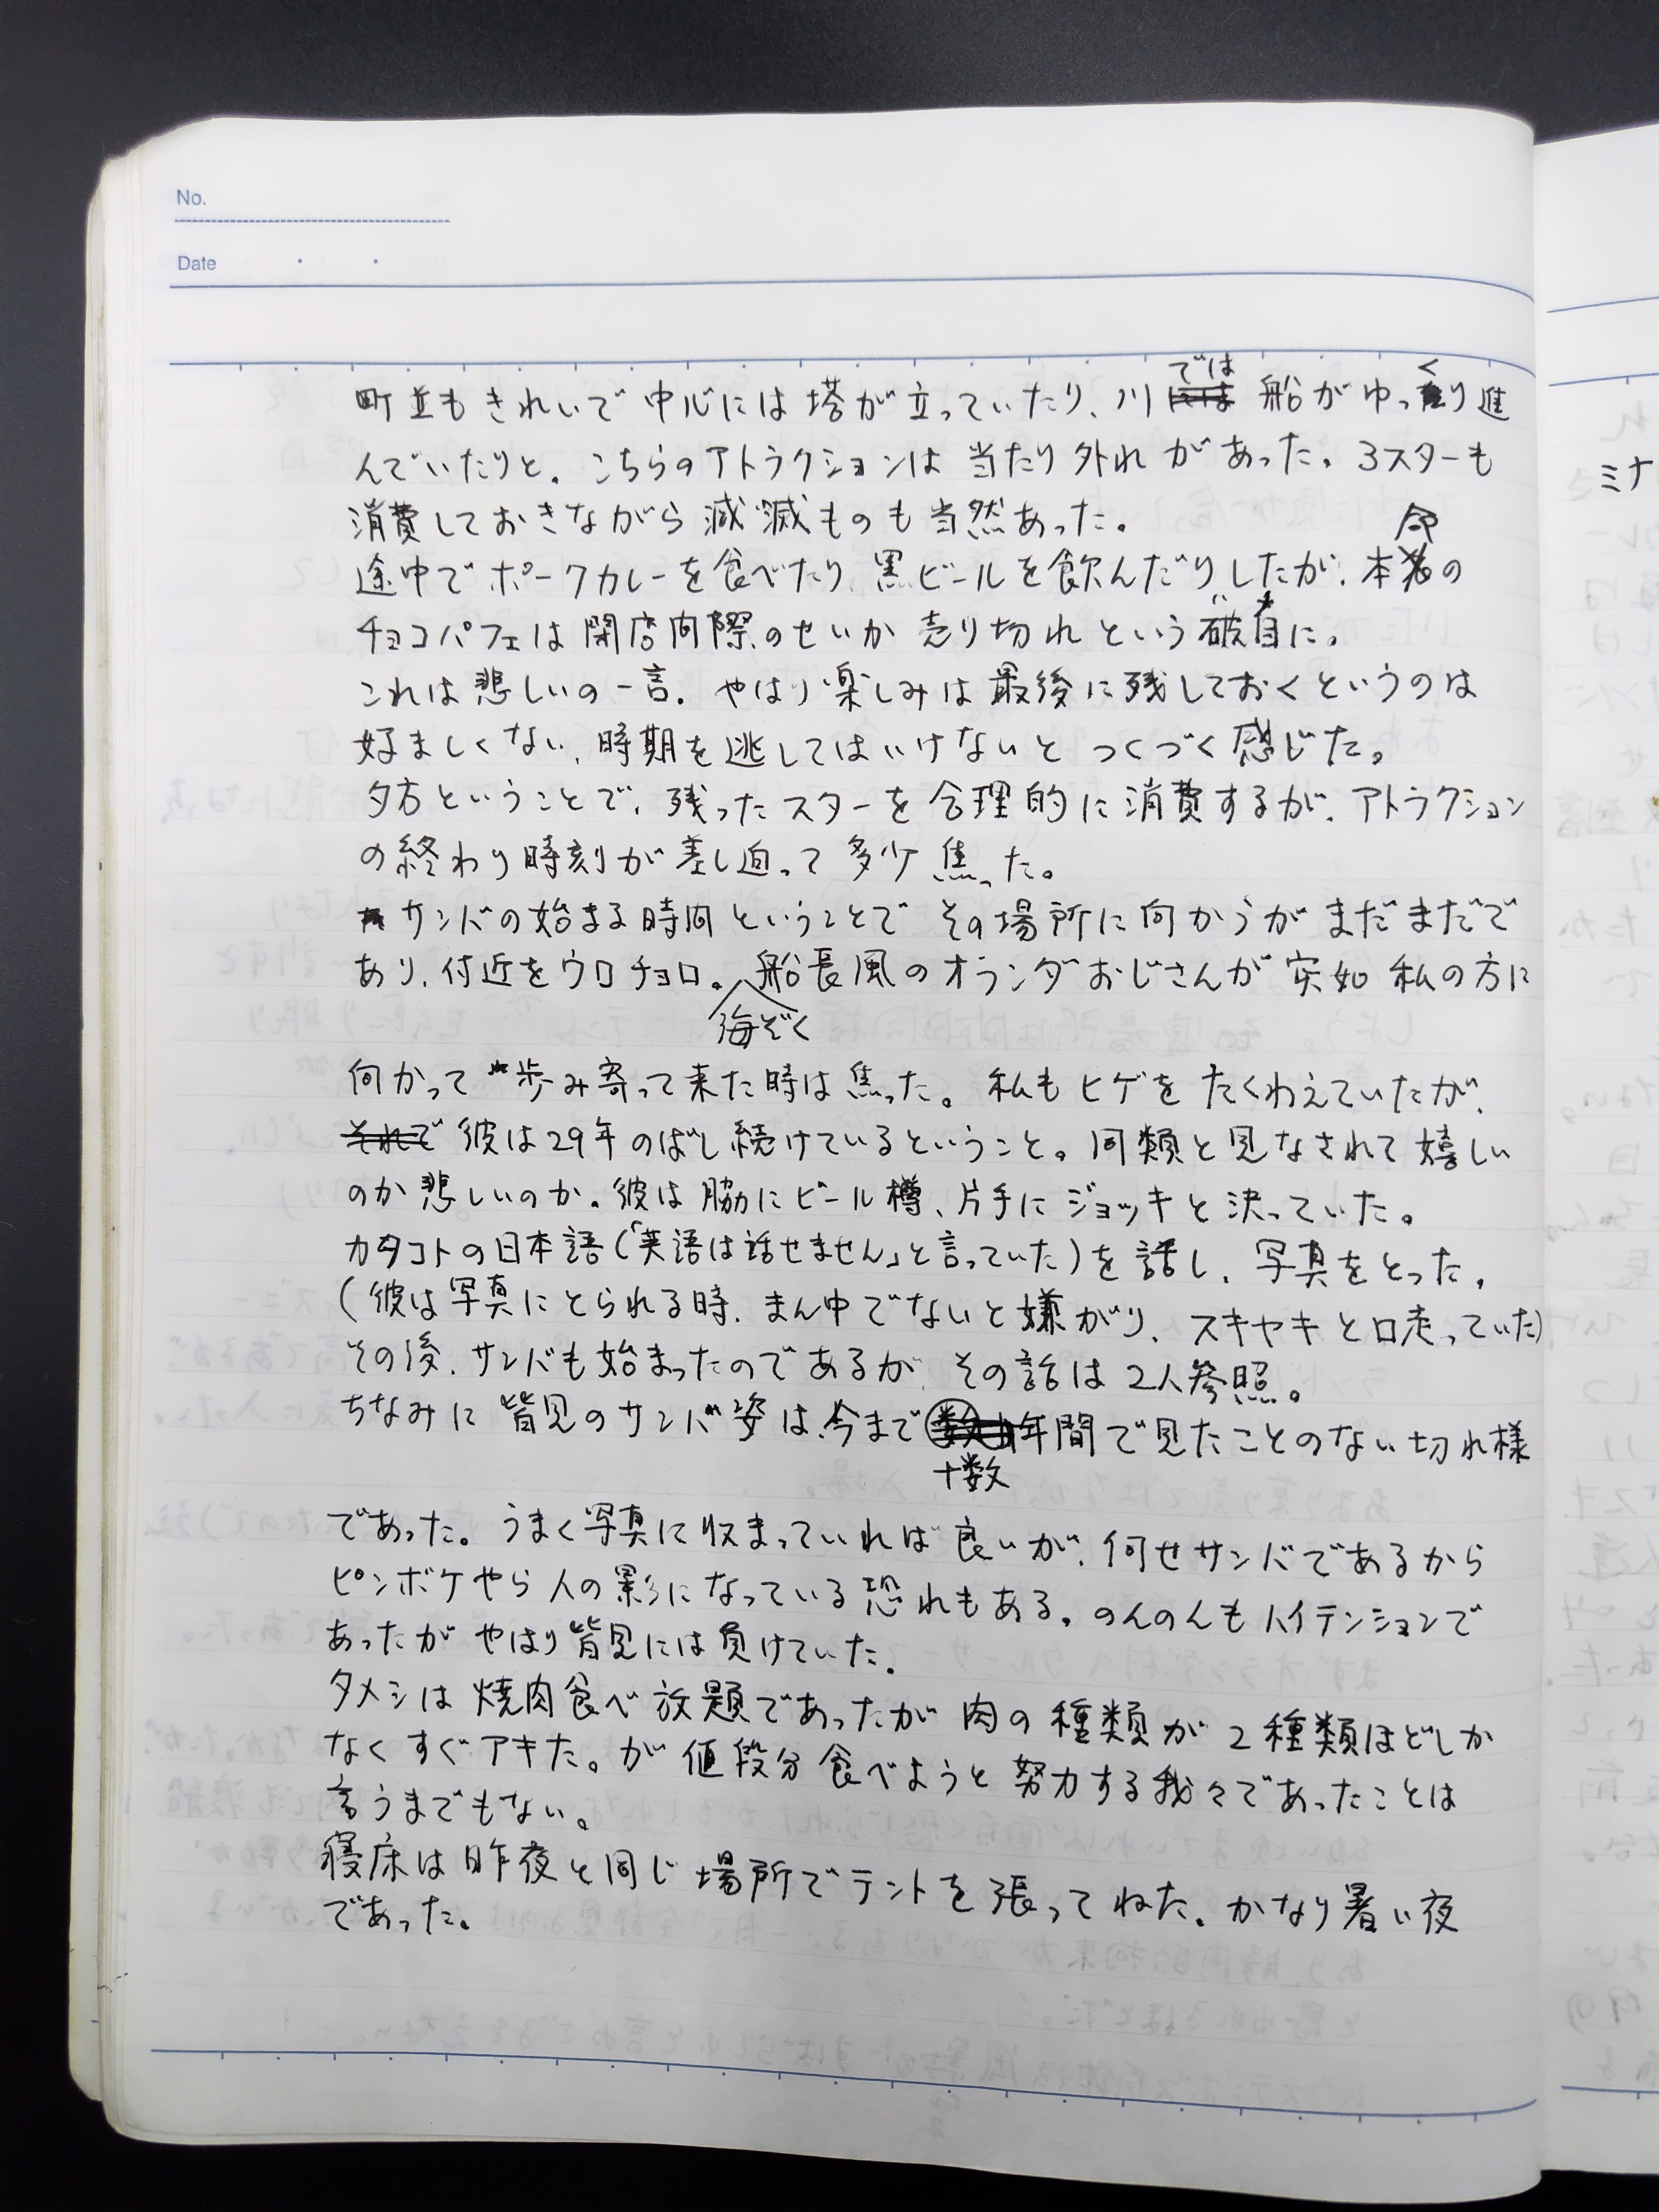 No.
Date
町並もきれいで中心には塔が立っていたり、川では船がゆっくり進
んでいたりと。こちらのアトラクションは当たり外れがあった。3スターも
消費しておきながら減滅ものも当然あった。
途中でポークカレーを食べたり、黒ビールを飲んだりしたが、本命の
チョコパフェは閉店間際のせいか売り切れという破目に。
これは悲しいの一言。やはり楽しみは最後に残しておくというのは
好ましくない、時期を逃してはいけないとつくづく感じた。
夕方ということで、残ったスターを合理的に消費するが、アトラクション
の終わり時刻が差し迫って多少焦った。
サンバの始まる時間ということでその場所に向かうがまだまだで
あり、付近をウロチョロ。船長風のオランダおじさんが突如私の方に
海ぞく
向かって歩み寄って来た時は焦った。私もヒゲをたくわえていたが、
それで彼は29年のばし続けているということ。同類と見なされて嬉しい
のか悲しいのか。彼は脇にビール樽、片手にジョッキと決っていた。
カタコトの日本語(「英語は話せません」と言っていた)を話し、写真をとった。
(彼は写真にとられる時、まん中でないと嫌がり、スキヤキと口走っていた)
その後、サンバも始まったのであるが、その話は2人参照。
ちなみに皆見のサンバ姿は、今まで年間で見たことのない切れ様
十数
であった。うまく写真に収まっていれば良いが、何せサンバであるから
ピンボケやら人の影になっている恐れもある。のんのんもハイテンションで
あったがやはり皆見には負けていた。
タメシは焼肉食べ放題であったが肉の種類が2種類ほどしか
なくすぐアキた。が値段分食べようと努力する我々であったことは
言うまでもない。
寝床は昨夜と同じ場所でテントを張ってねた。かなり暑い夜
であった。
ミナ